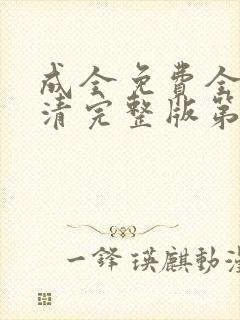 成全免費全
清完整版第
一鋒瑛麒動漫